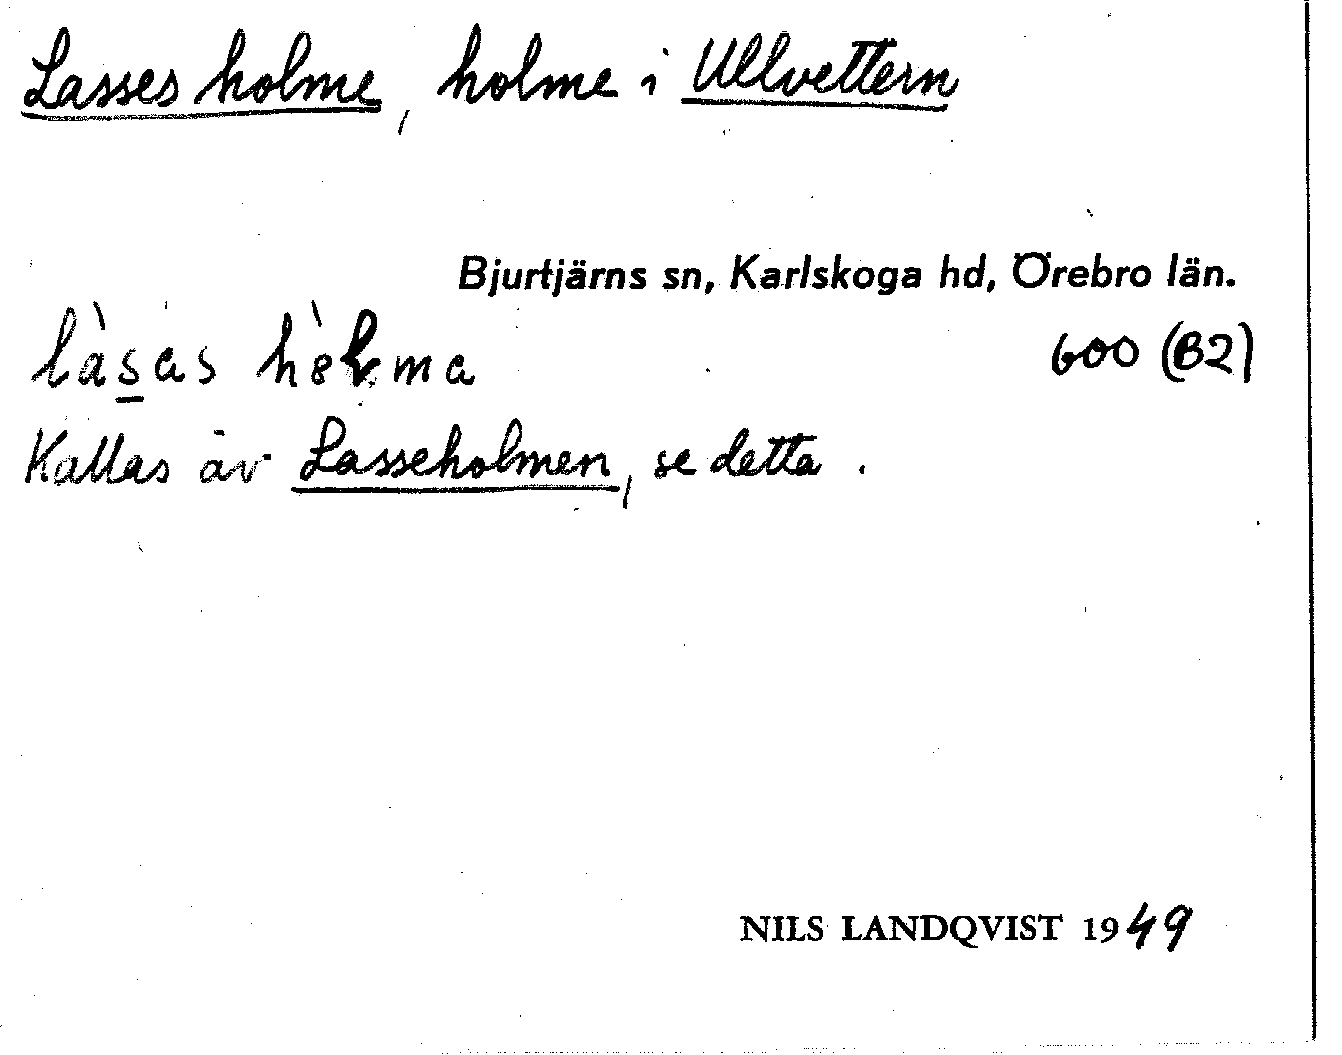 Lasses holme, holme i Ullvettern
Bjurtjärns sn, Karlskoga hd, Örebro län.
600 (B2)
Kallas äv Lasseholmen, se detta.
NILS LANDQVIST 1949